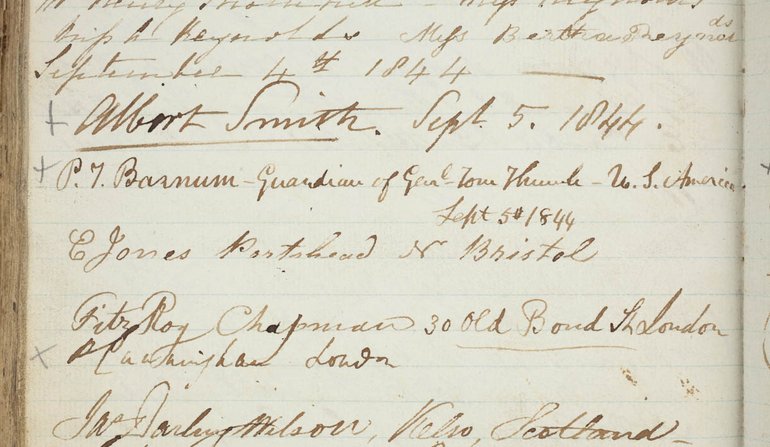 Miss Reynolds Miss Bertha Reynolds
September 4th 1844
Albert Smith. Sept. 5. 1844.
P. T. Barnum - Guardian of Genl Tom Thumb - U. S. America.
Sept 5th 1844
E Jones Portshead Nr Bristol
FitzRoy Chapman 30 Old Bond St London
Cunningham London
Jas Darling Wilson, Kelso, Scotland